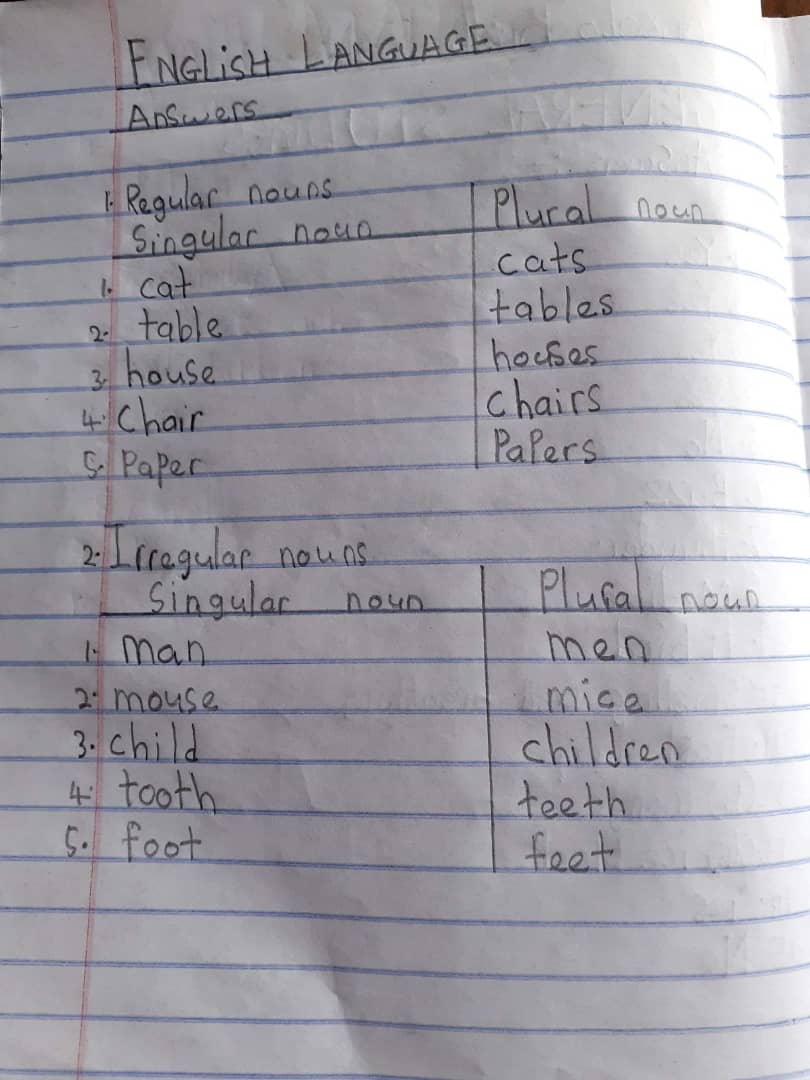 ENGLISH LANGUAGE
Answers
1. Regular nouns
Singular noun Plural noun
1. cat cats
2. table tables
3. house houses
4. Chair Chairs
5. Paper Papers
2. Irregular nouns
Singular noun Plural noun
1. man men
2. mouse mice
3. child children
4. tooth teeth
5. foot feet